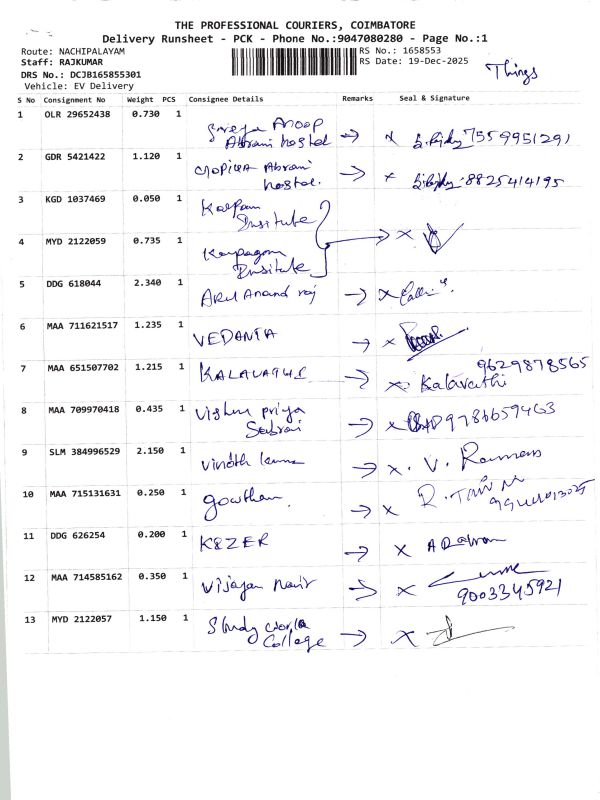 THE PROFESSIONAL COURIERS, COIMBATORE
Delivery Runsheet - PCK - Phone No.:9047080280 - Page No.:1
Route: NACHIPALAYAM
RS No.: 1658553
Staff: RAJKUMAR
RS Date: 19-Dec-2025
Things
DRS No.: DCJB165855301
Vehicle: EV Delivery
S No Consignment No Weight PCS Consignee Details Remarks Seal & Signature
1 OLR 29652438 0.730 1 Anoop
Abrami hostel 7559951291
2 GDR 5421422 1.120 1 Abrami
hostel. 8825414195
3 KGD 1037469 0.050 1
Insitute
4 MYD 2122059 0.735 1 Karpagam
Insitute
5 DDG 618044 2.340 1 Arul Anand raj
6 MAA 711621517 1.235 1 VEDANTA
7 MAA 651507702 1.215 1 9629878565
Kalavathi
8 MAA 709970418 0.435 1 Vishnu priya
9786659463
9 SLM 384996529 2.150 1 Vinoth V.
10 MAA 715131631 0.250 1 gowtham R.
11 DDG 626254 0.200 1
12 MAA 714585162 0.350 1 Vijayan
9003345921
13 MYD 2122057 1.150 1 Study World
College